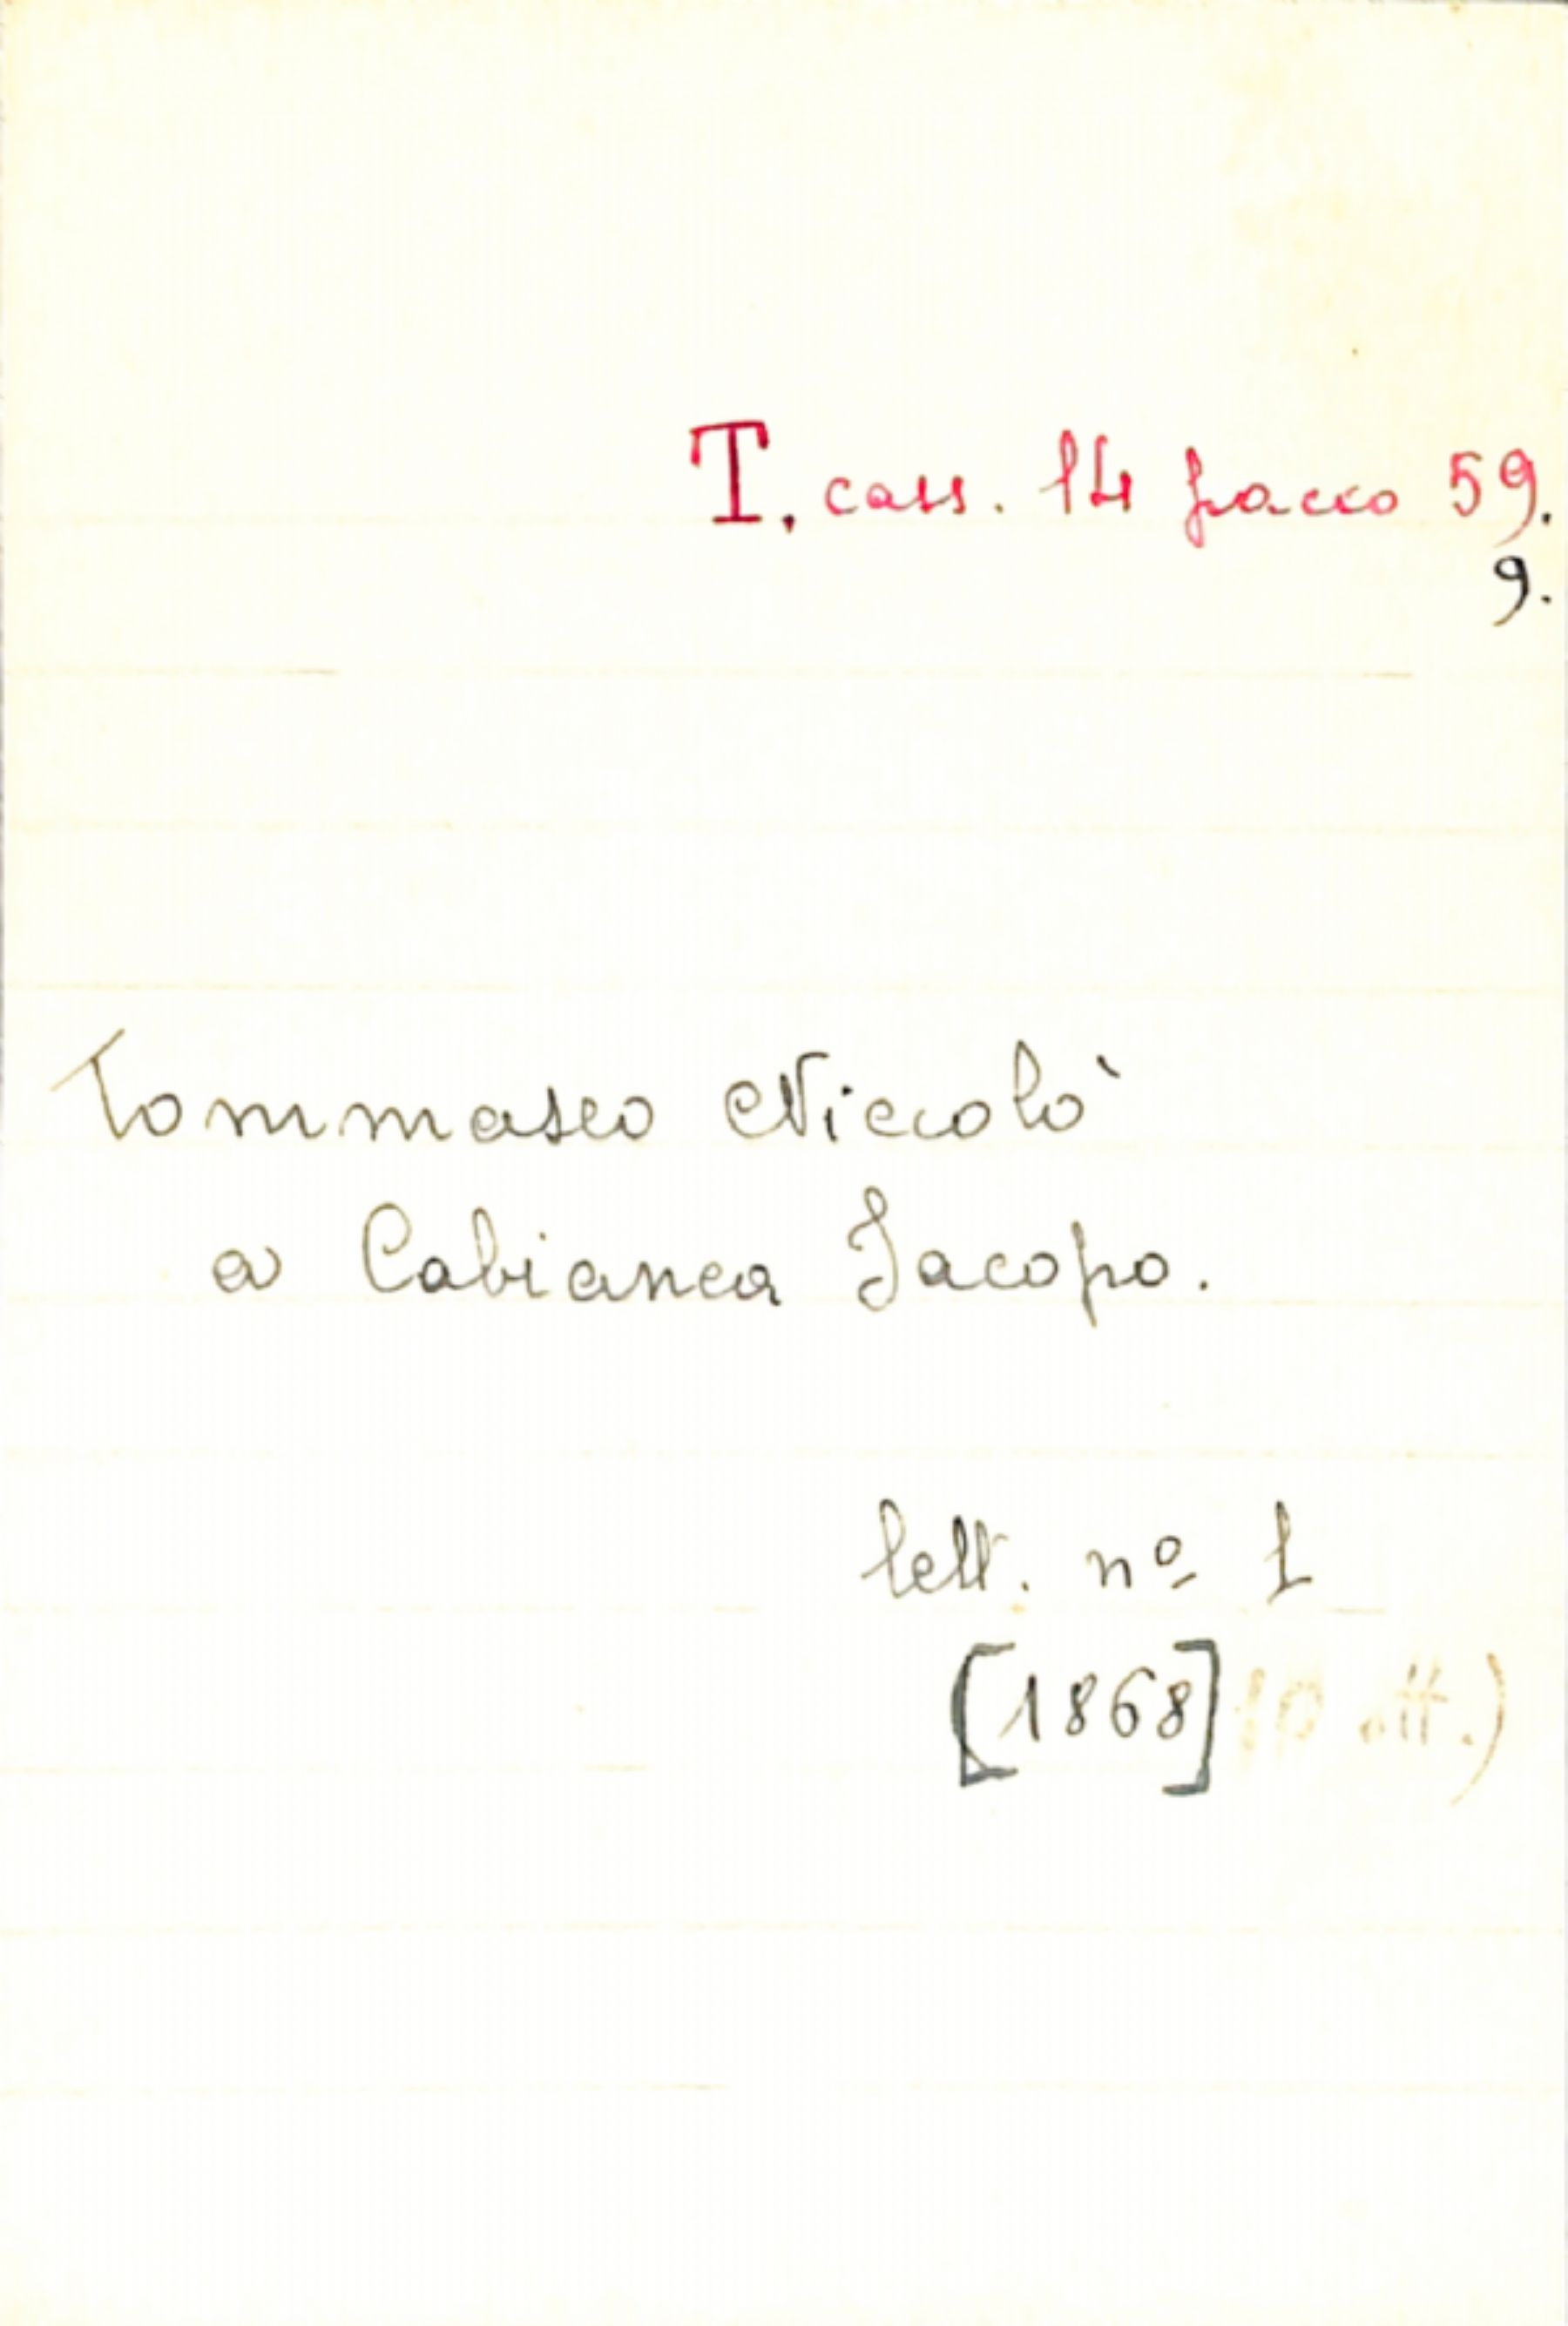 T. cass. 14 pacco 59.
9.
Tommaseo Niccolò
a Cabianca Jacopo.
lett. nº 1
[1868]